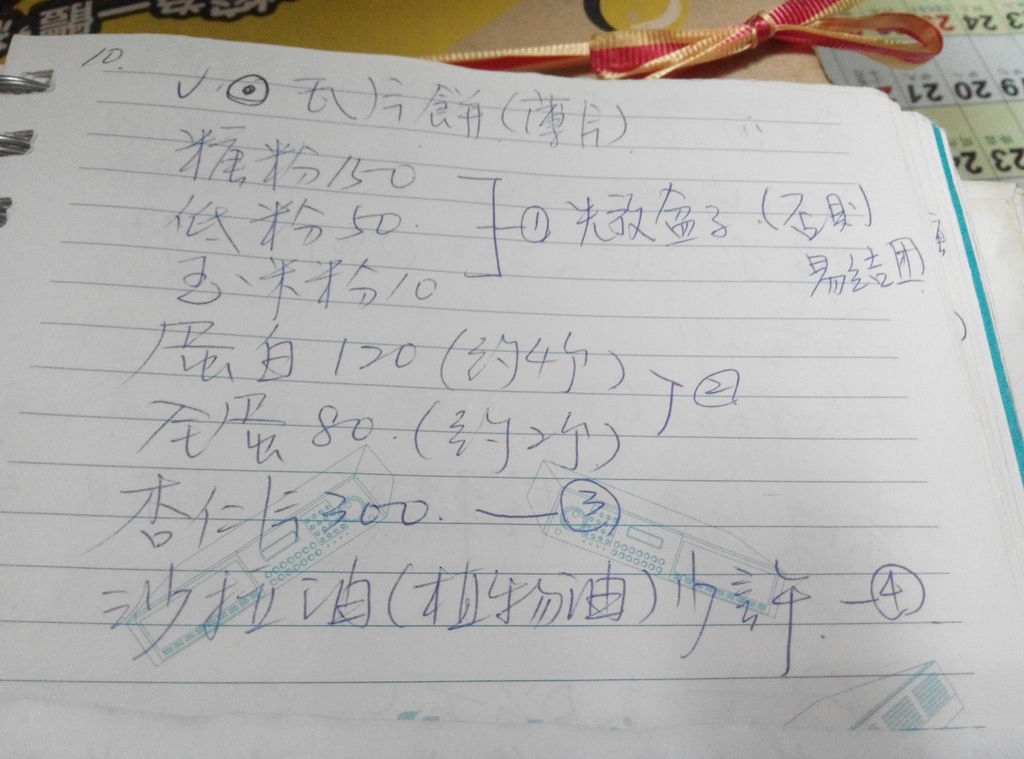 10.
✓ ⊙ 瓦片餅(薄片)
糖粉150
低粉50.
玉米粉10
①先放盆子(否則
易結团
蛋白120(約4个)
全蛋80.(約2个)
②
杏仁片300. — ③
沙拉油(植物油)少許. — ④
23 24
19 20 21
23